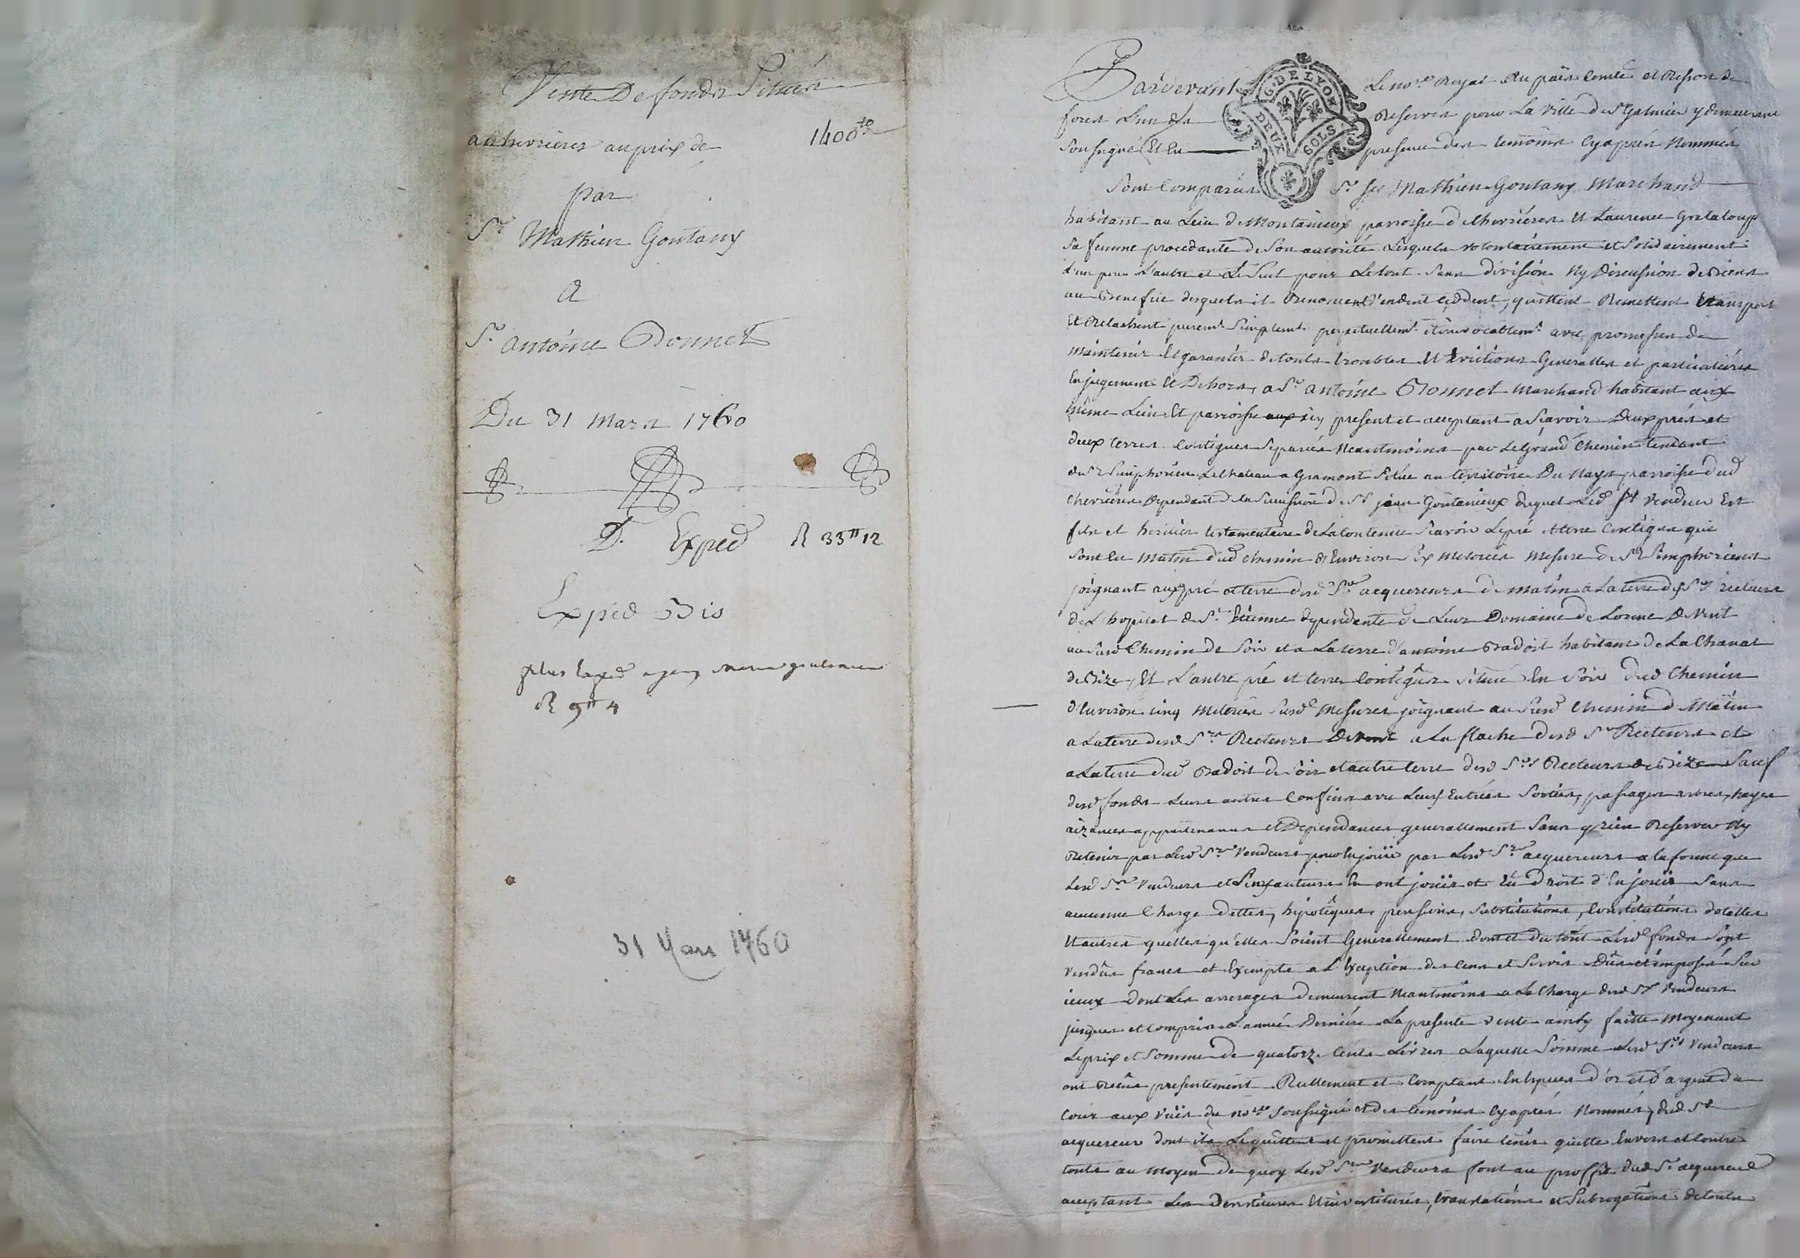 Vente De fonds Situés
a chevrieres au prix de 1400 ᵗᵗ
par
Sʳ Mathieu Goutany
A
Sʳ antoine Bonnet
Du 31 Mars 1760
D. Exped R 33ᵗᵗ 12
Exped Bis
R 9ᵗᵗ 4
31 Mars 1760
G. DE LYON
DEUX SOLS
Pardevant Le noʳᵉ Royal du païs Comté et Ressort de
forez L'un des Reserves pour La Ville de Sᵗ Galmier y demeurant
Soussigné Et En presence des temoins Cyaprés Nommés
Sont Comparus Sʳ Mathieu Goutany Marchand
habitant au Lieu de Montanieux parroisse de Chevriéres Et Laurence Grataloup
Sa femme procedante de Son autorité Lesquels volontairement et Solidairement
L'un pour L'autre et Le Seul pour Le tout Sans division Ny Discussion de Biens
au Benefice desquels il Renoncent Vendent Ceddent, quittent Remettent transport
Et Relachent puremᵗ Simplemᵗ perpetuellemᵗ et irrevocablemᵗ avec promesses de
Maintenir Et garantir de touts troubles Et Evictions Generalles et particulières
En jugement Et Dehors, a Sʳ antoine Bonnet Marchand habitant aux
même Lieu Et parroisse icy present et acceptant a Scavoir Deux prés et
deux terres Contigues Separés Neantmoins par Le Grand Chemin tendant
de Sᵗ Simphorien Le Chateau a Gramont Situé au territoire Du Nays parroisse dud
Chevriéres Dependant de la Succession de Sʳ jean Goutanieux duquel Led Sʳ Vendeur Est
fils et heritier testamentaire de La Contenue Scavoir Le pré et terre Contigue qui
Sont En Matin dud Chemin d'Environ Six Meterées Mesure de Sᵗ Simphorien
joignant aux pré et terre dud Sʳ acquereur de Matin a La terre des Sʳˢ recteurs
de L'hopital de Sᵗ Etienne dependante de Leur Domaine de Lorme De Vent
au Susd Chemin de Soir et a La terre d'antoine Badoit habitant de La Chanat
de Bize, Et L'autre pré et terre Contigüe située En Soir dud Chemin
d'Environ cinq Meterées Susd Mesure joignant au Susd Chemin de Matin
a La terre desd Sʳˢ Recteurs De Vent a La flache desd Sʳˢ Recteurs et
a La terre dud Badoit de Soir et autre terre desd Sʳˢ Recteurs de Bize Sauf
desd fonds Leurs autres Confins avec Leurs Entrées Sorties, passages arbres, hayes
aizances appartenances et Dependances generallement Sans y rien Reserver Ny
Retenir par Lesd Sʳˢ Vendeurs pour En jouir par Led Sʳ acquereur a la forme que
Lesd Sʳˢ Vendeurs et Leurs auteurs En ont jouis et Eu Droit d'En jouir Sans
aucune Charge dettes, hipotêques, pensions, Substitutions, Constitutions dotalles
Et autres quelles qu'elles Soient Generallement Dont et du tout Lesd fonds Sont
Vendus francs et Exempts a L'Exeption des Cens et Servis Dûs et imposés Sur
iceux Dont Les arrerages demeurent Neantmoins a La Charge desd Sʳˢ Vendeurs
jusques et Compris L'année Derniére La presente Vente ainsy faitte Moyenant
Le prix et Somme de quatorze Cents Livres Laquelle Somme Lesd Sʳˢ Vendeurs
ont Reçus presentement Réellement et Comptant En Espèces d'or et d'argent de
Cour aux Vuës du noʳᵉ Soussigné et des témoins Cyaprés Nommés, dud Sʳ
acquereur dont ils Le quittent et promettent faire tenir quitte Envers et Contre
touts au Moyen de quoy Lesd Sʳˢ Vendeurs font au proffit dud Sʳ acquereur
acceptant Les Devetitures Et investitures, translations et Subrogations de toutes